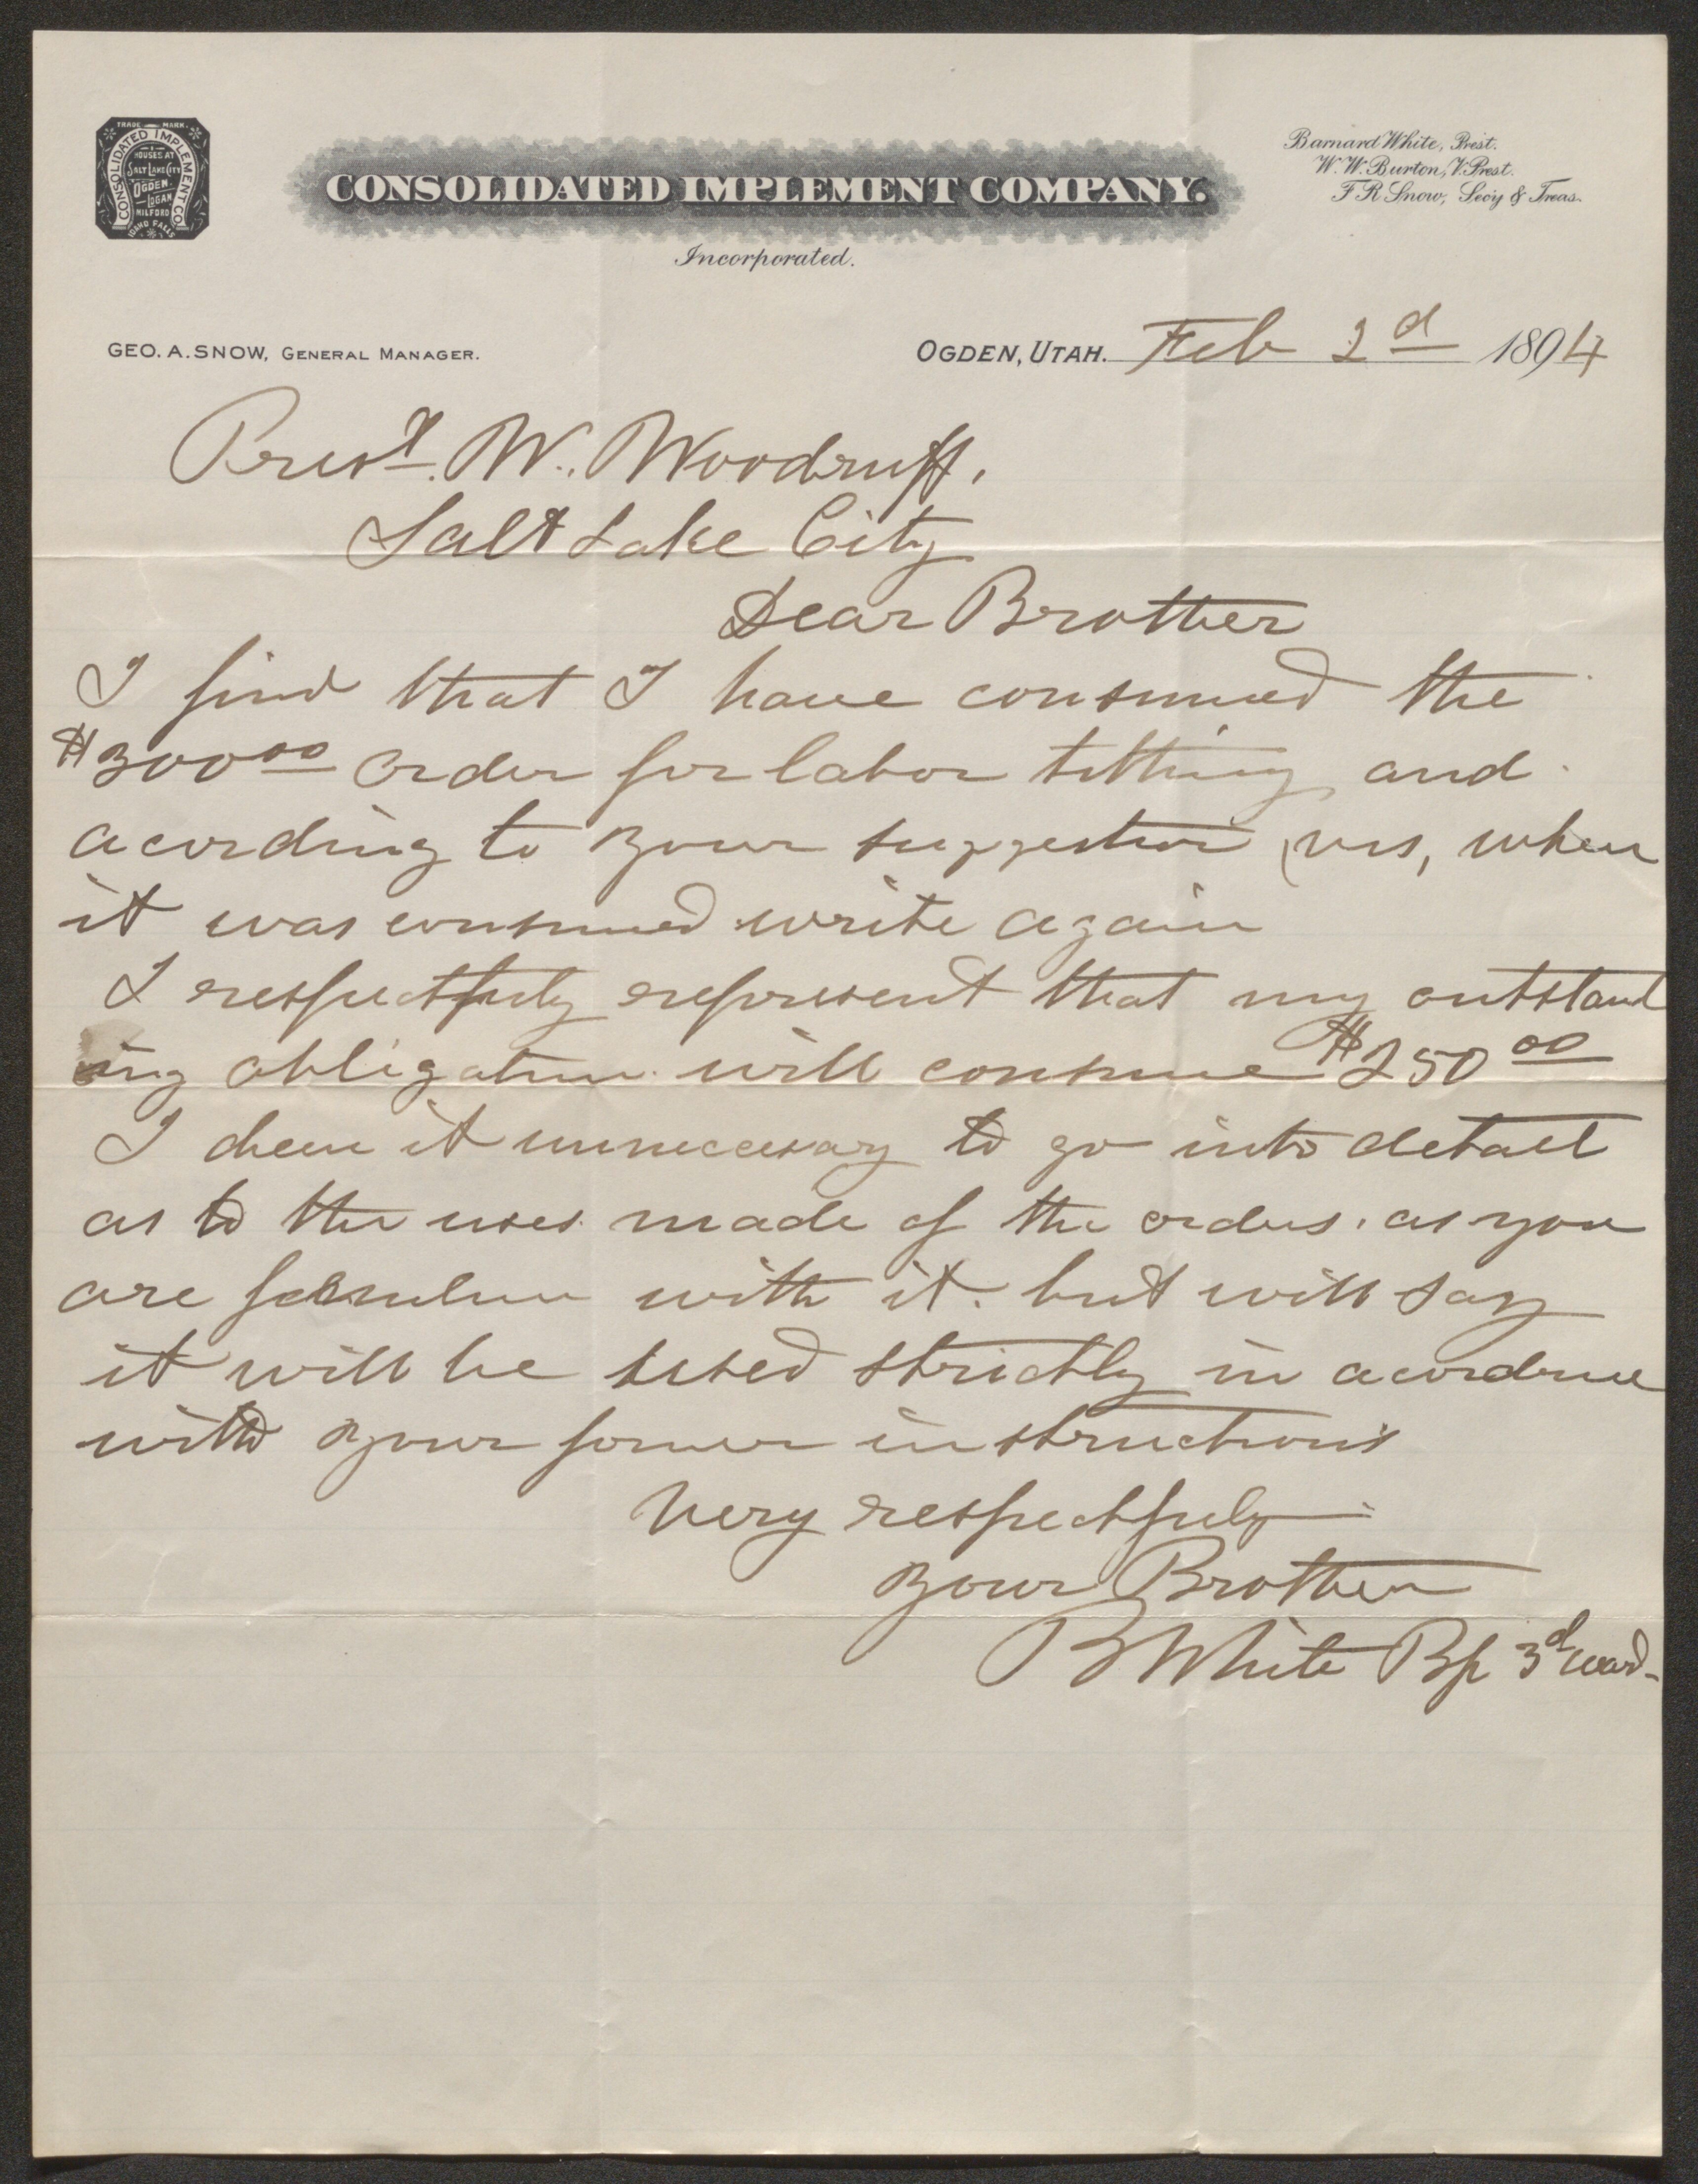 TRADE MARK.
CONSOLIDATED IMPLEMENT CO.
HOUSES AT
SALT LAKE CITY
OGDEN
LOGAN
MILFORD
IDAHO FALLS
CONSOLIDATED IMPLEMENT COMPANY.
Incorporated.
Barnard White, Prest.
W. W. Burton, V. Prest.
F R Snow, Sec'y & Treas.
GEO. A. SNOW, GENERAL MANAGER.
OGDEN, UTAH. Feb 2d 1894
Prest. W. Woodruff.
Salt Lake City
Dear Brother
I find that I have consumed the
$300 00 order for labor tithing and
acording to your suggestion, vis, when
it was consumed write again
I respectfuly represent that my outstand
ing obligation will consume $250 00
I deem it unnecessary to go into detail
as to the uses made of the orders. as you
are familiar with it. but will say
it will be used strictly in acordance
with your former instructions
Very respectfuly
your Brother
B White Bp 3d ward-